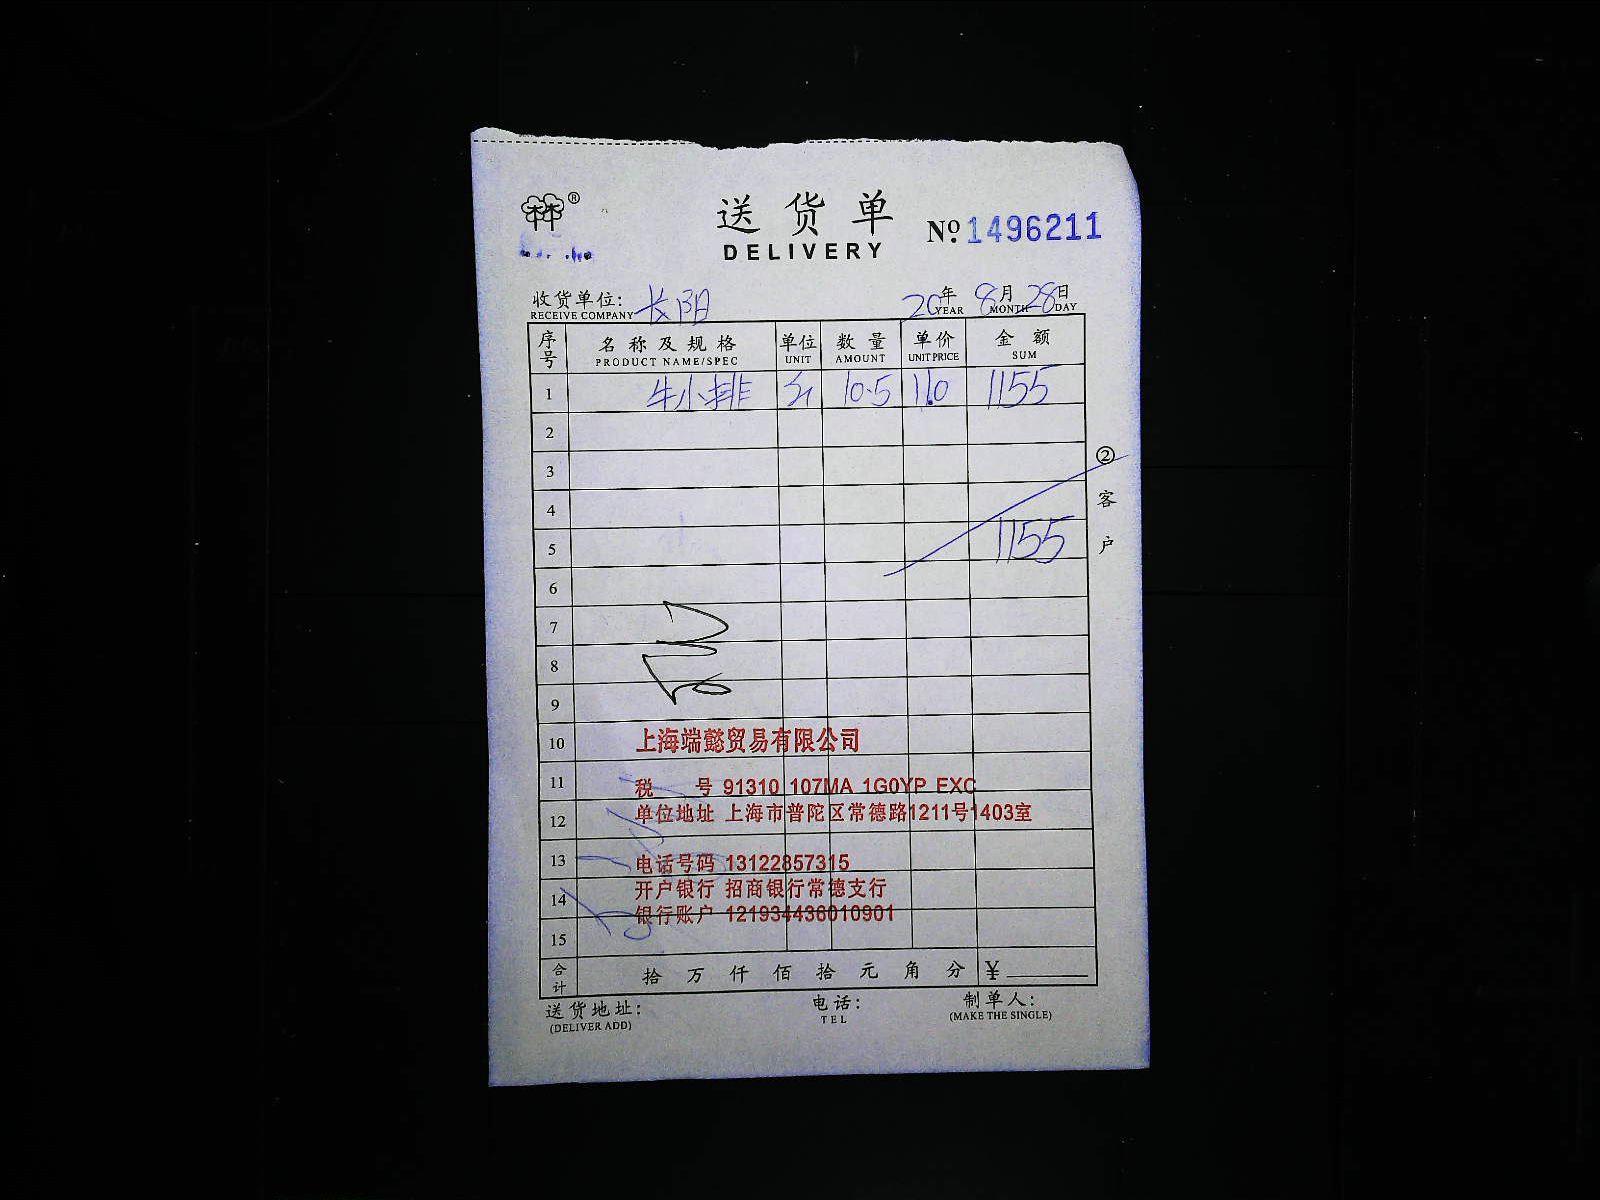 ®
送货单
DELIVERY
№ 1496211
收货单位: 长阳
RECEIVE COMPANY
20年 8月 28日
YEAR MONTH DAY
序号 名称及规格 单位 数量 单价 金额
PRODUCT NAME/SPEC UNIT AMOUNT UNIT PRICE SUM
1 牛小排 斤 10.5 110 1155
2
3
4
5 1155
6
7
8
9
10
11
12
13
14
15
② 客户
上海端懿贸易有限公司
税 号 91310 107MA 1G0YP EXC
单位地址 上海市普陀区常德路1211号1403室
电话号码 13122857315
开户银行 招商银行常德支行
银行账户 121934436010901
合计 拾 万 仟 佰 拾 元 角 分 ¥
送货地址: 电话: 制单人:
(DELIVER ADD) TEL (MAKE THE SINGLE)